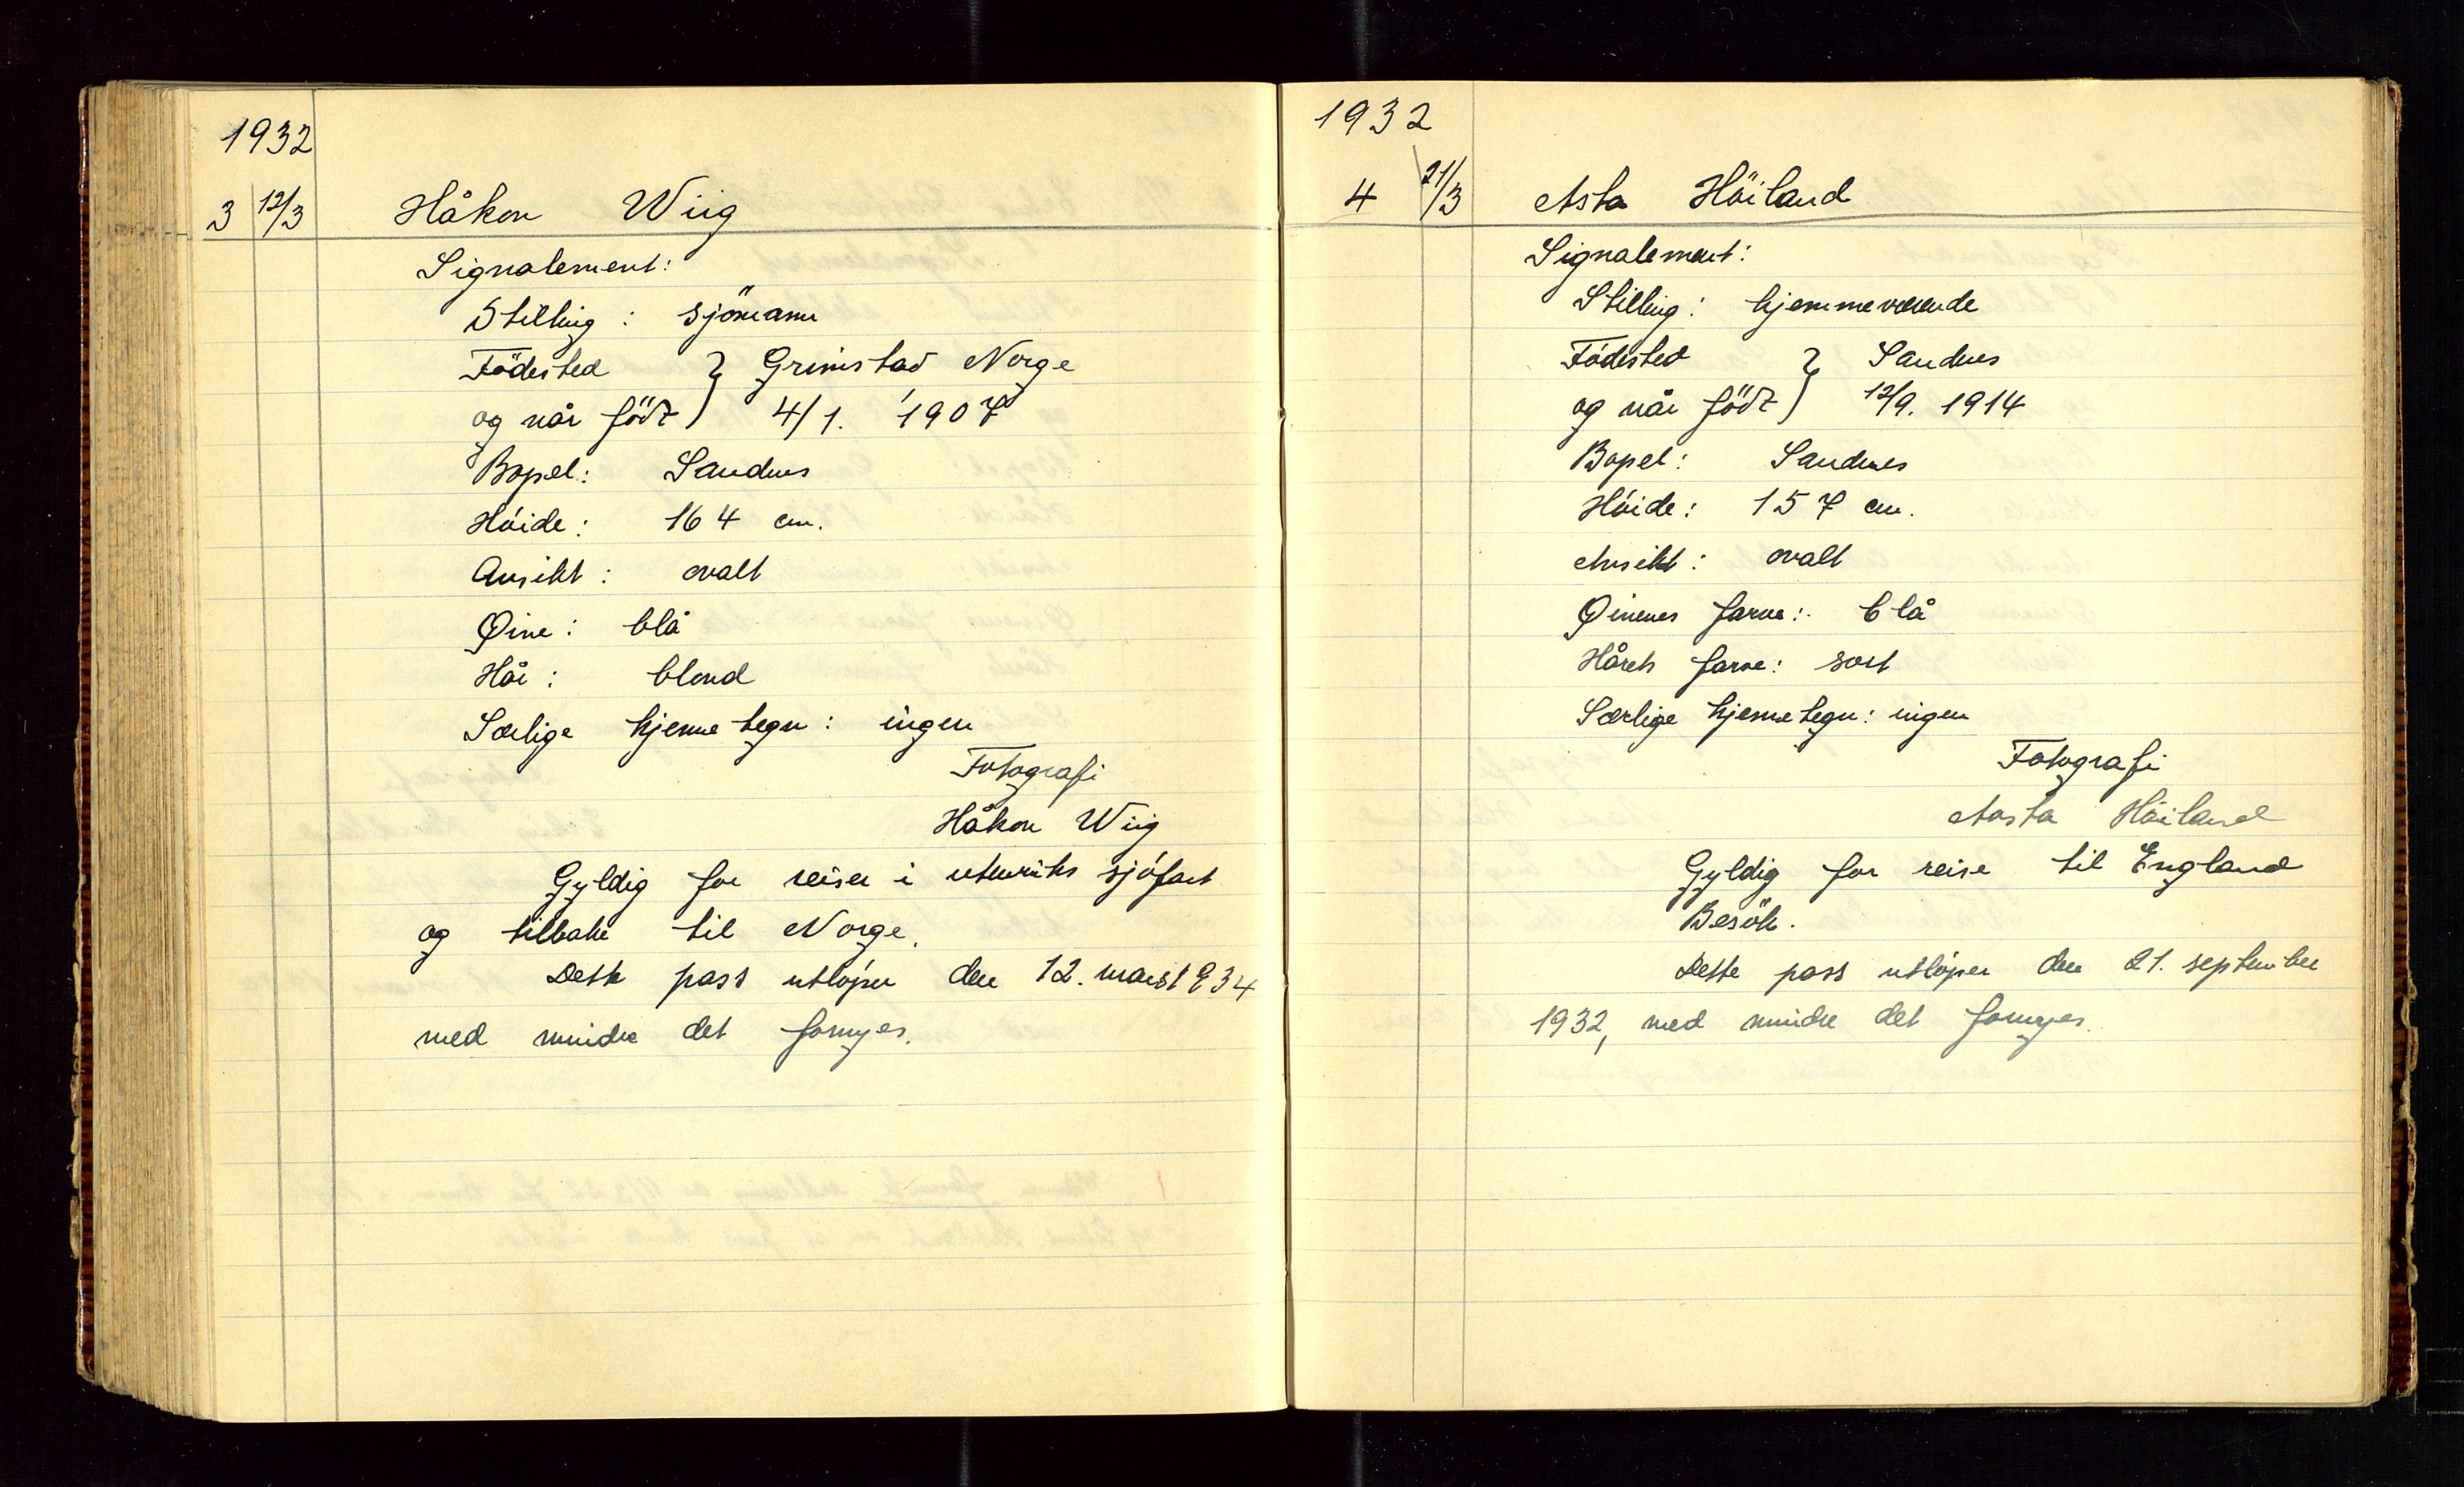 1932
3 12/3 Håkon Wiig
Signalement:
Stilling: sjömann
Födested } Grimstad Norge
og når födt } 4/1. 1907
Bopel: Sandnes
Höide: 164 cm.
Ansikt: ovalt
Øine: blå
Hår: blond
Særlige kjennetegn: ingen
Fotografi
Håkon Wiig
Gyldig for reiser i utenriks sjöfart
og tilbake til Norge.
Dette pass utlöper den 12. mars 1934
med mindre det fornyes.
1932
4 21/3 Asta Höiland
Signalement:
Stilling: hjemmeværende
Födested } Sandnes
og når födt } 12/9. 1914
Bopel: Sandnes
Höide: 157 cm.
Ansikt: ovalt
Øinenes farve: blå
Hårets farve: sort
Særlige kjennetegn: ingen
Fotografi
Aasta Höiland
Gyldig for reise til England
Besök.
Dette pass utlöper den 21. september
1932, med mindre det fornyes.